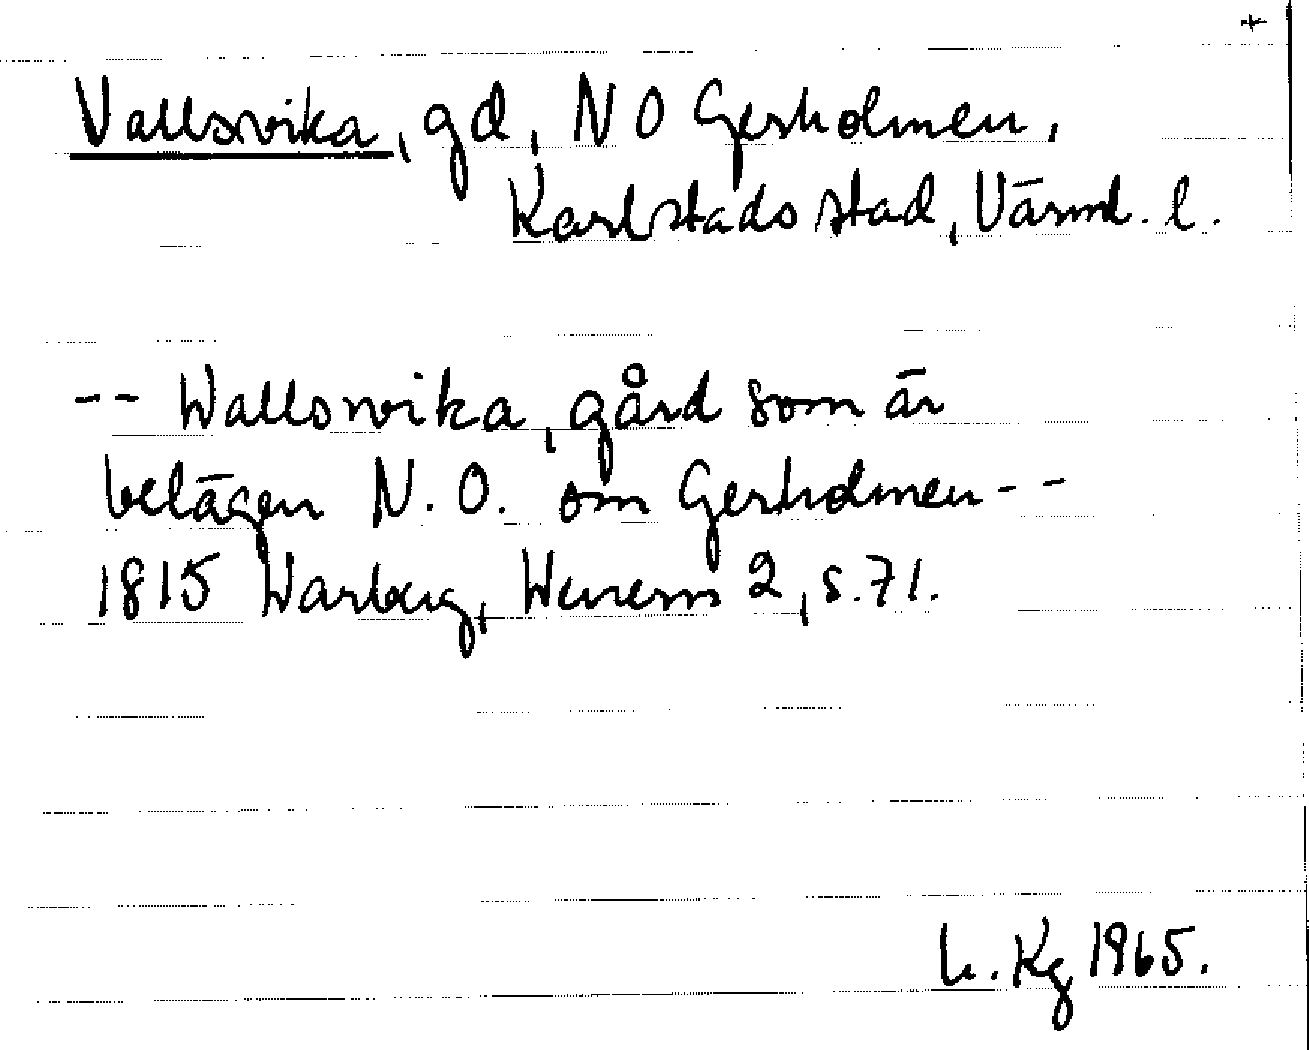 +
Vallsvika, gd, N O Gerholmen,
Karlstads stad, Värml. l.
-- Wallsvika, gård som är
belägen N. O. om Gerholmen--
1815 Warberg, Wenern 2, s. 71.
h. Kg 1965.